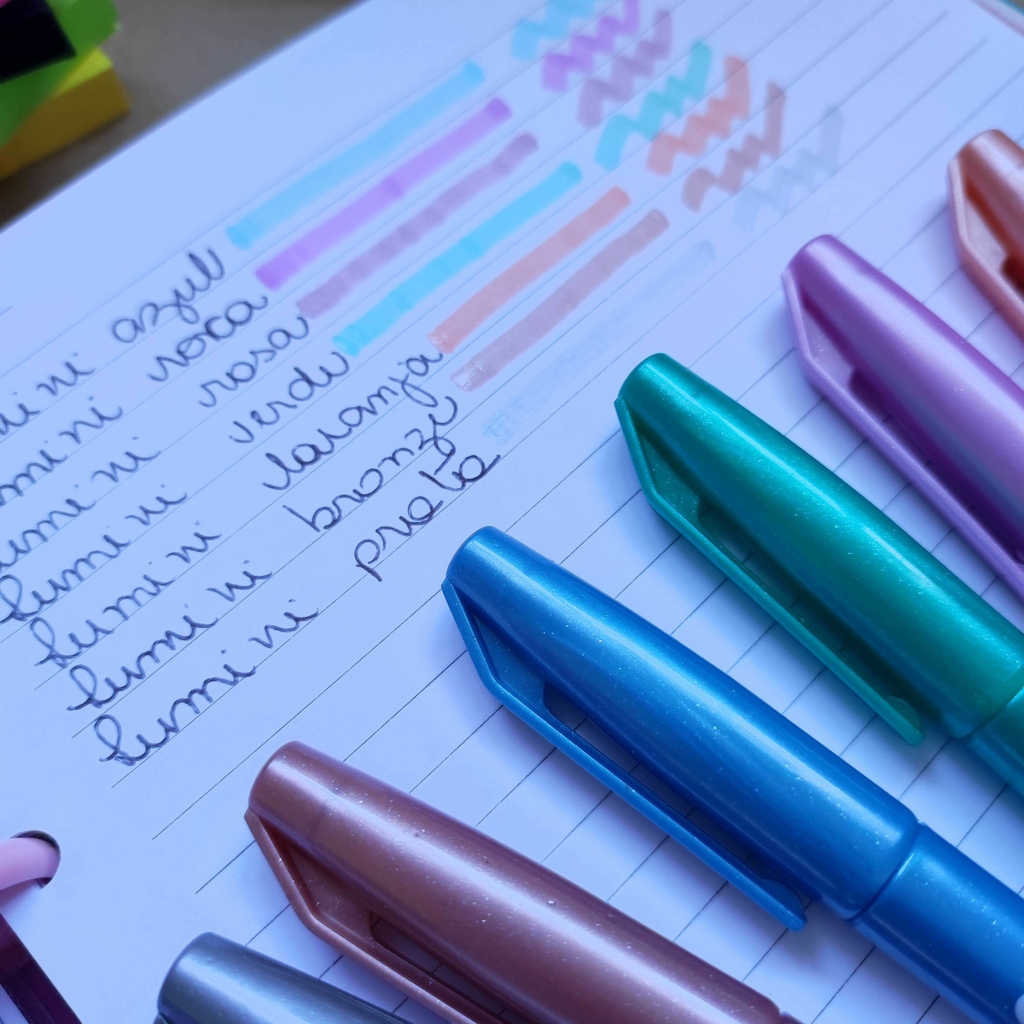 mini azul
umini roxa
lumini rosa
lumini verde
lumini laranja
lumini bronze
lumini prata